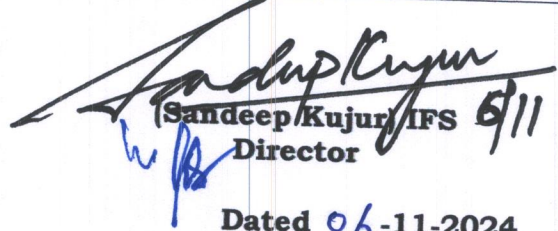 Sandeep Kujur 6/11
(Sandeep Kujur) IFS
Director
Dated 06-11-2024